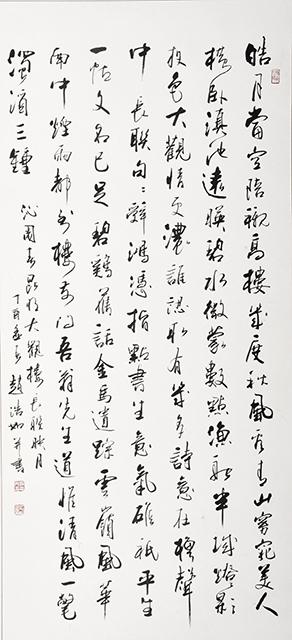 皓月當空陪襯高樓幾度秋風有青山窈窕美人
橫卧滇池遠暎碧水微蒙數點漁舡半城燈影
夜色大觀情更濃誰認取有幾多詩意在櫓聲
中長聯句句辭鴻憑指點書生意氣雄祇平生
一帖文名已足碧鷄舊話金馬遺蹤雲嶺風華
中煙雨都到樓前問吾翁先生道惟清風一氅
濁酒三鍾
沁園春昆明大觀樓長聯映月
丁酉趙浩如并書